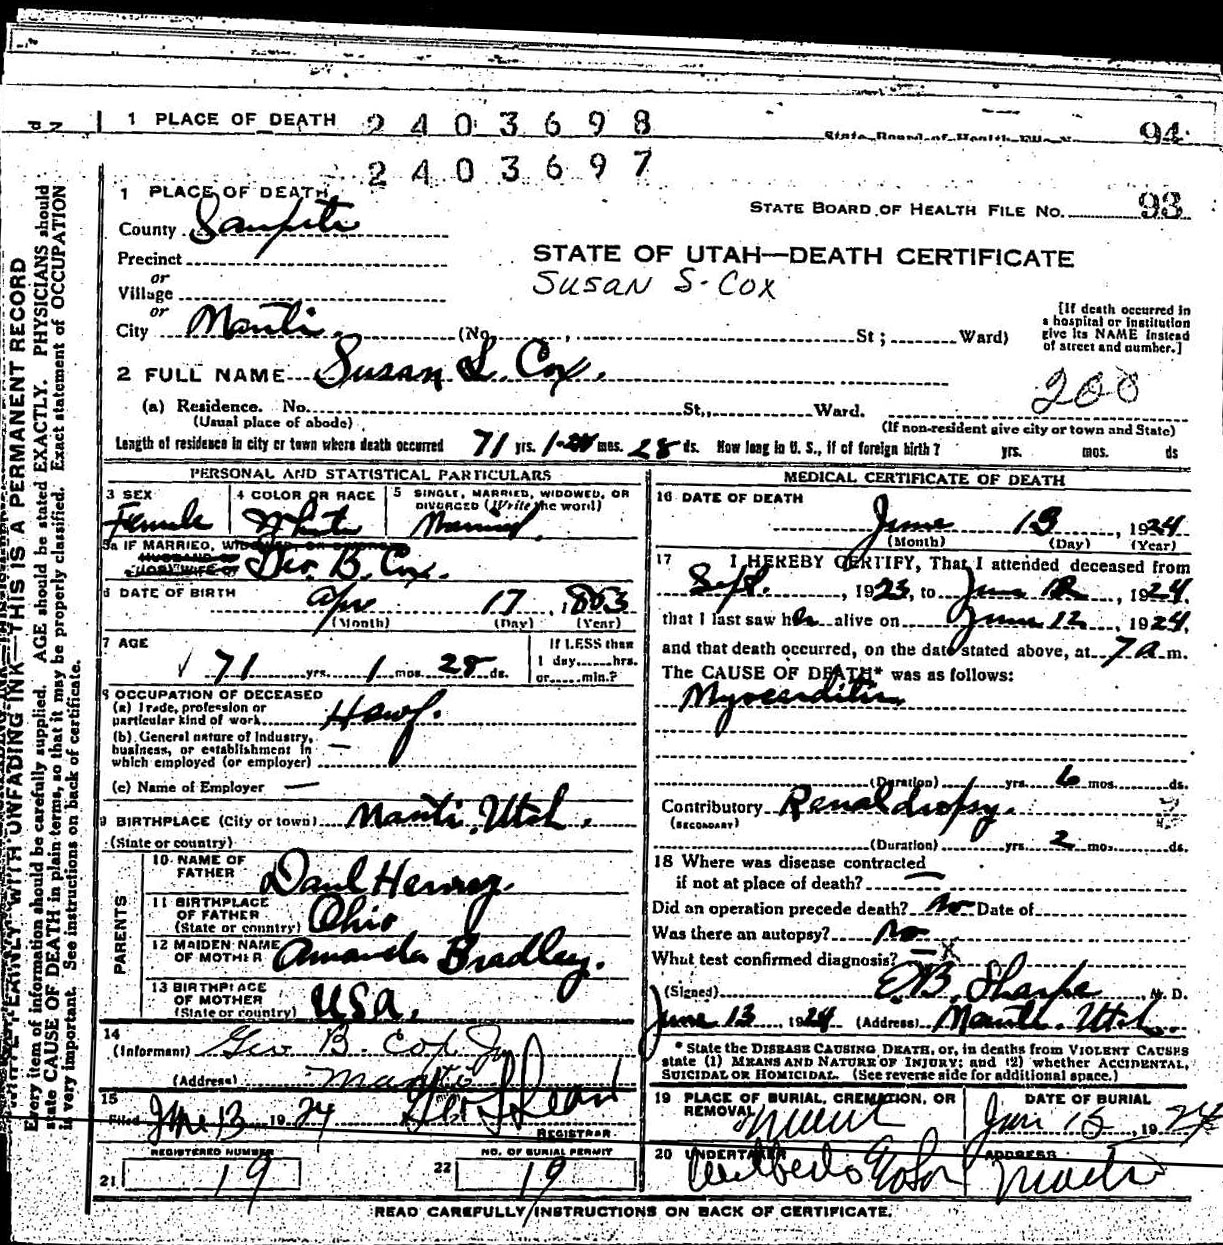 1 PLACE OF DEATH 2403698
State Board of Health File No. 94
2403697
1 PLACE OF DEATH
STATE BOARD OF HEALTH FILE NO. 93
County Sanpete
STATE OF UTAH—DEATH CERTIFICATE
Precinct
SUSAN S. COX
or
Village
or
City Manti. (No. , St ; Ward)
[If death occurred in a hospital or institution give its NAME instead of street and number.]
2 FULL NAME Susan S. Cox.
200
(a) Residence. No. St., Ward.
(Usual place of abode) (If non-resident give city or town and State)
Length of residence in city or town where death occurred 71 yrs. 1 mos. 28 ds. How long in U. S., if of foreign birth? yrs. mos. ds
PERSONAL AND STATISTICAL PARTICULARS
3 SEX Female
4 COLOR OR RACE White
5 SINGLE, MARRIED, WIDOWED, OR DIVORCED (Write the word) Married.
5a IF MARRIED, WIDOWED, OR DIVORCED
HUSBAND OF
(OR) WIFE OF Geo. B. Cox.
6 DATE OF BIRTH Apr 17, 1853
(Month) (Day) (Year)
7 AGE 71 yrs. 1 mos. 28 ds.
If LESS than
1 day......hrs.
or......min.?
8 OCCUPATION OF DECEASED
(a) Trade, profession or
particular kind of work Hswf.
(b) General nature of Industry,
business, or establishment in —
which employed (or employer)
(c) Name of Employer —
9 BIRTHPLACE (City or town) Manti, Utah.
(State or country)
PARENTS
10 NAME OF FATHER Danl Henrey.
11 BIRTHPLACE OF FATHER (State or country) Ohio
12 MAIDEN NAME OF MOTHER Amanda Bradley.
13 BIRTHPLACE OF MOTHER (State or country) USA.
14
(Informant) Geo B. Cox Jr
(Address) Manti
15
Filed June 13 1924
REGISTRAR
REGISTERED NUMBER
21 19
NO. OF BURIAL PERMIT
22 19
MEDICAL CERTIFICATE OF DEATH
16 DATE OF DEATH
June 13, 1924
(Month) (Day) (Year)
17 I HEREBY CERTIFY, That I attended deceased from
Sept. , 1923, to June 12, 1924.
that I last saw her alive on June 12, 1924,
and that death occurred, on the date stated above, at 7 a m.
The CAUSE OF DEATH* was as follows:
Myocarditis
(Duration) yrs. 6 mos. ds.
Contributory Renal dropsy.
(SECONDARY)
(Duration) yrs. 2 mos. ds.
18 Where was disease contracted
if not at place of death? —
Did an operation precede death? No Date of
Was there an autopsy? No
What test confirmed diagnosis? — x
(Signed) E.B. Sharpe, M. D.
June 13 1924 (Address) Manti. Utah.
* State the DISEASE CAUSING DEATH, or, in deaths from VIOLENT CAUSES
state (1) MEANS AND NATURE OF INJURY; and (2) whether ACCIDENTAL,
SUICIDAL OR HOMICIDAL. (See reverse side for additional space.)
19 PLACE OF BURIAL, CREMATION, OR REMOVAL Manti
DATE OF BURIAL Jun 15, 1924
20 UNDERTAKER
ADDRESS Manti
READ CAREFULLY INSTRUCTIONS ON BACK OF CERTIFICATE.
WRITE PLAINLY, WITH UNFADING INK—THIS IS A PERMANENT RECORD
Every item of information should be carefully supplied. AGE should be stated EXACTLY. PHYSICIANS should
state CAUSE OF DEATH in plain terms, so that it may be properly classified. Exact statement of OCCUPATION
is very important. See instructions on back of certificate.